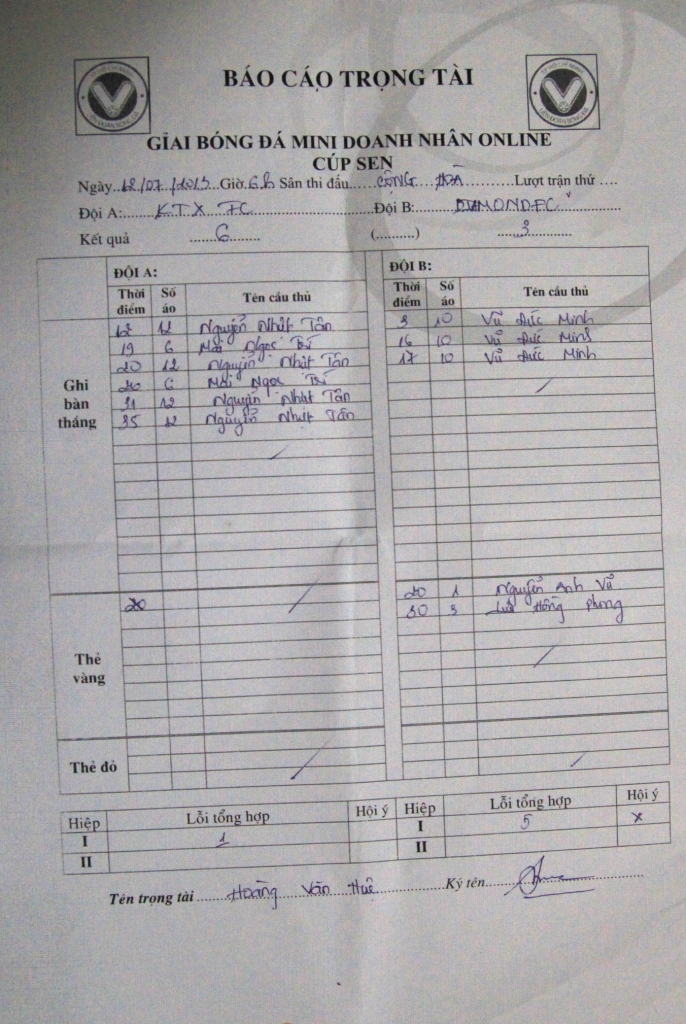 BÁO CÁO TRỌNG TÀI
GIẢI BÓNG ĐÁ MINI DOANH NHÂN ONLINE
CÚP SEN
Ngày 12/07/2015 Giờ 6h Sân thi đấu CỘNG HÒA Lượt trận thứ ....
Đội A: KTX FC Đội B: DIAMOND FC
Kết quả 6 (..........) 3
ĐỘI A: ĐỘI B:
Thời điểm Số áo Tên cầu thủ Thời điểm Số áo Tên cầu thủ
Ghi bàn thắng
12 12 Nguyễn Nhật Tân 3 10 Vũ Đức Minh
19 6 Mai Ngọc Trí 16 10 Vũ Đức Minh
20 12 Nguyễn Nhật Tân 17 10 Vũ Đức Minh
20 6 Mai Ngọc Trí
31 12 Nguyễn Nhật Tân
35 12 Nguyễn Nhật Tân
Thẻ vàng
20 1 Nguyễn Anh Vũ
30 3 Hồng Phong
Thẻ đỏ
Hiệp Lỗi tổng hợp Hội ý Hiệp Lỗi tổng hợp Hội ý
I 1 I 5 x
II II
Tên trọng tài Hoàng Văn Huê Ký tên